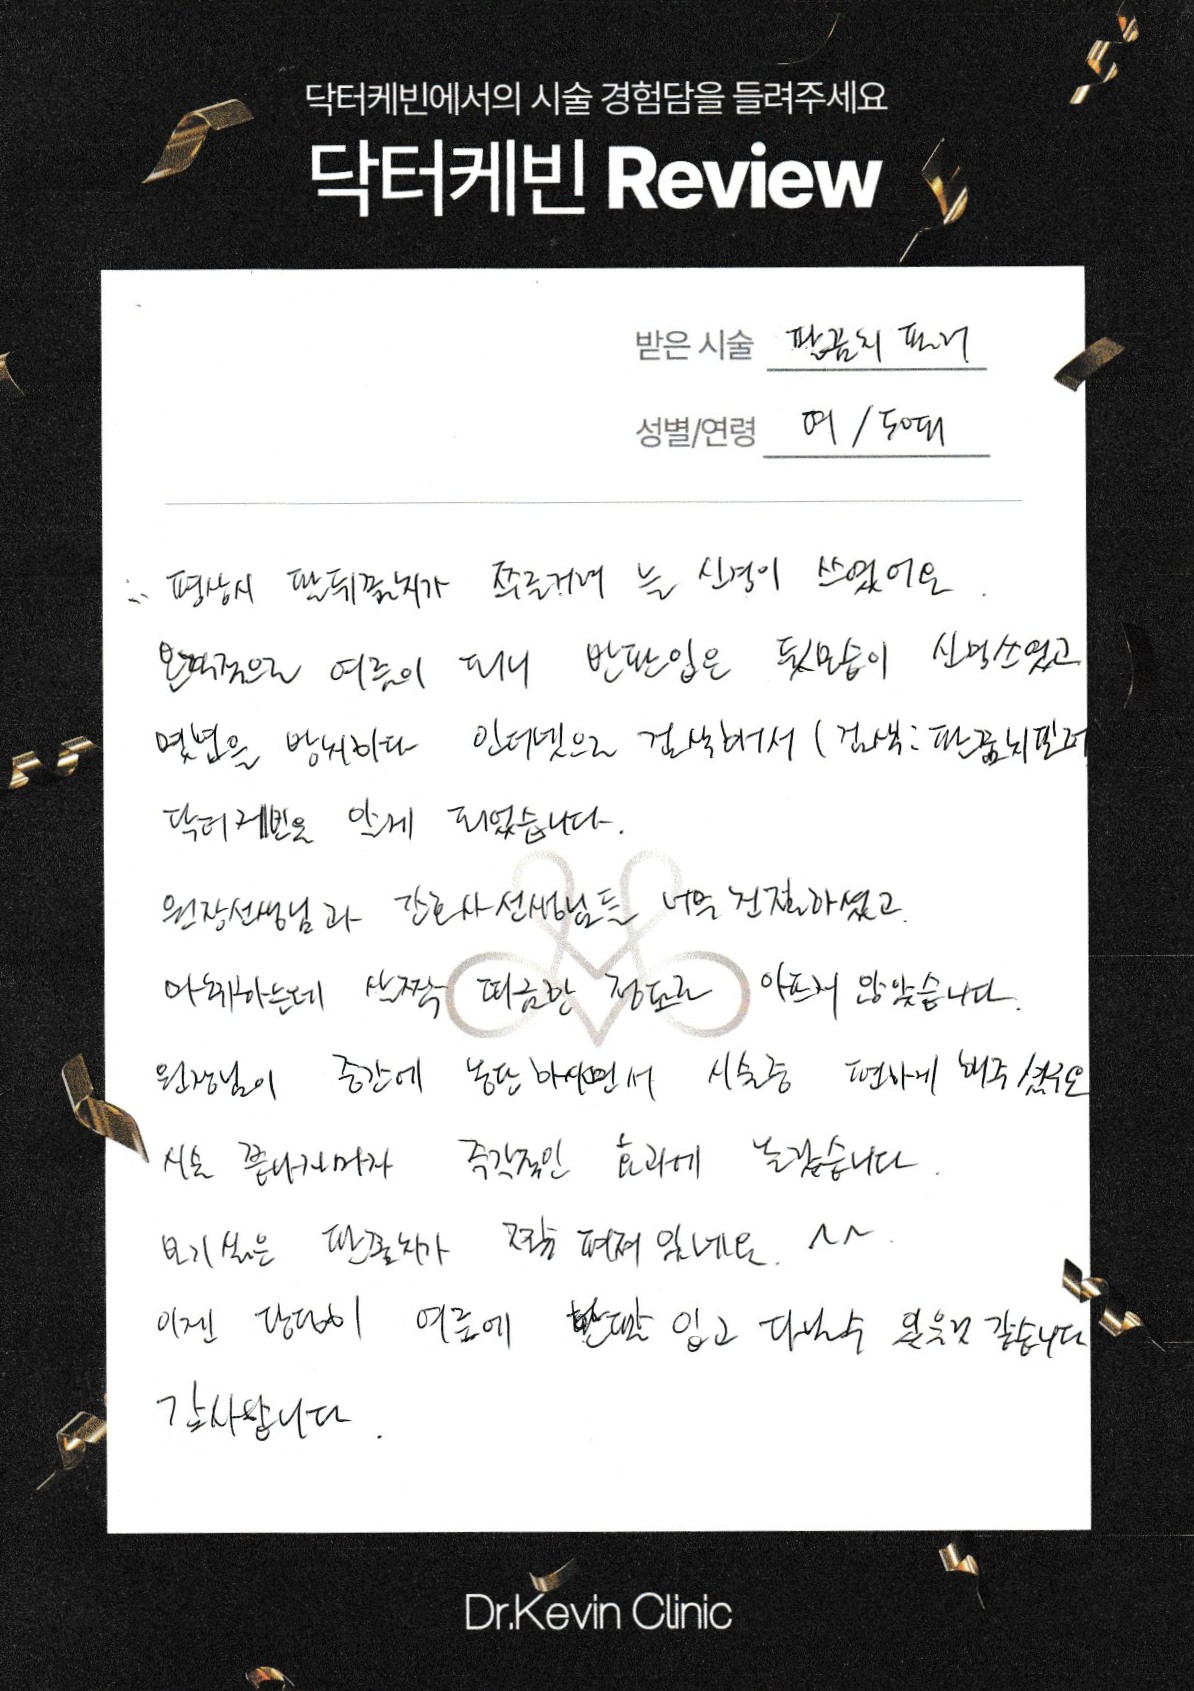 닥터케빈에서의 시술 경험담을 들려주세요
닥터케빈 Review
받은 시술 팔꿈치 필러
성별/연령 여 / 50대
평상시 팔뒤꿈치가 쭈글거려 늘 신경이 쓰였어요.
여름이 되니 반팔입은 뒷모습이 신경쓰였고
몇년을 방치하다 인터넷으로 검색해서 (검색: 팔꿈치필러
닥터케빈을 알게 되었습니다.
원장선생님과 간호사선생님들 너무 친절하셨고.
마취하는데 살짝 따끔한 정도로 아프지 않았습니다.
원장님이 중간에 농담하시면서 시술중 편하게 해주셨구요
시술 끝나자마자 즉각적인 효과에 놀랐습니다.
보기싫은 팔꿈치가 쫙 펴져 있네요. ^^
이젠 당당히 여름에 반팔 입고 다닐수 있을것 같습니다
감사합니다.
Dr.Kevin Clinic